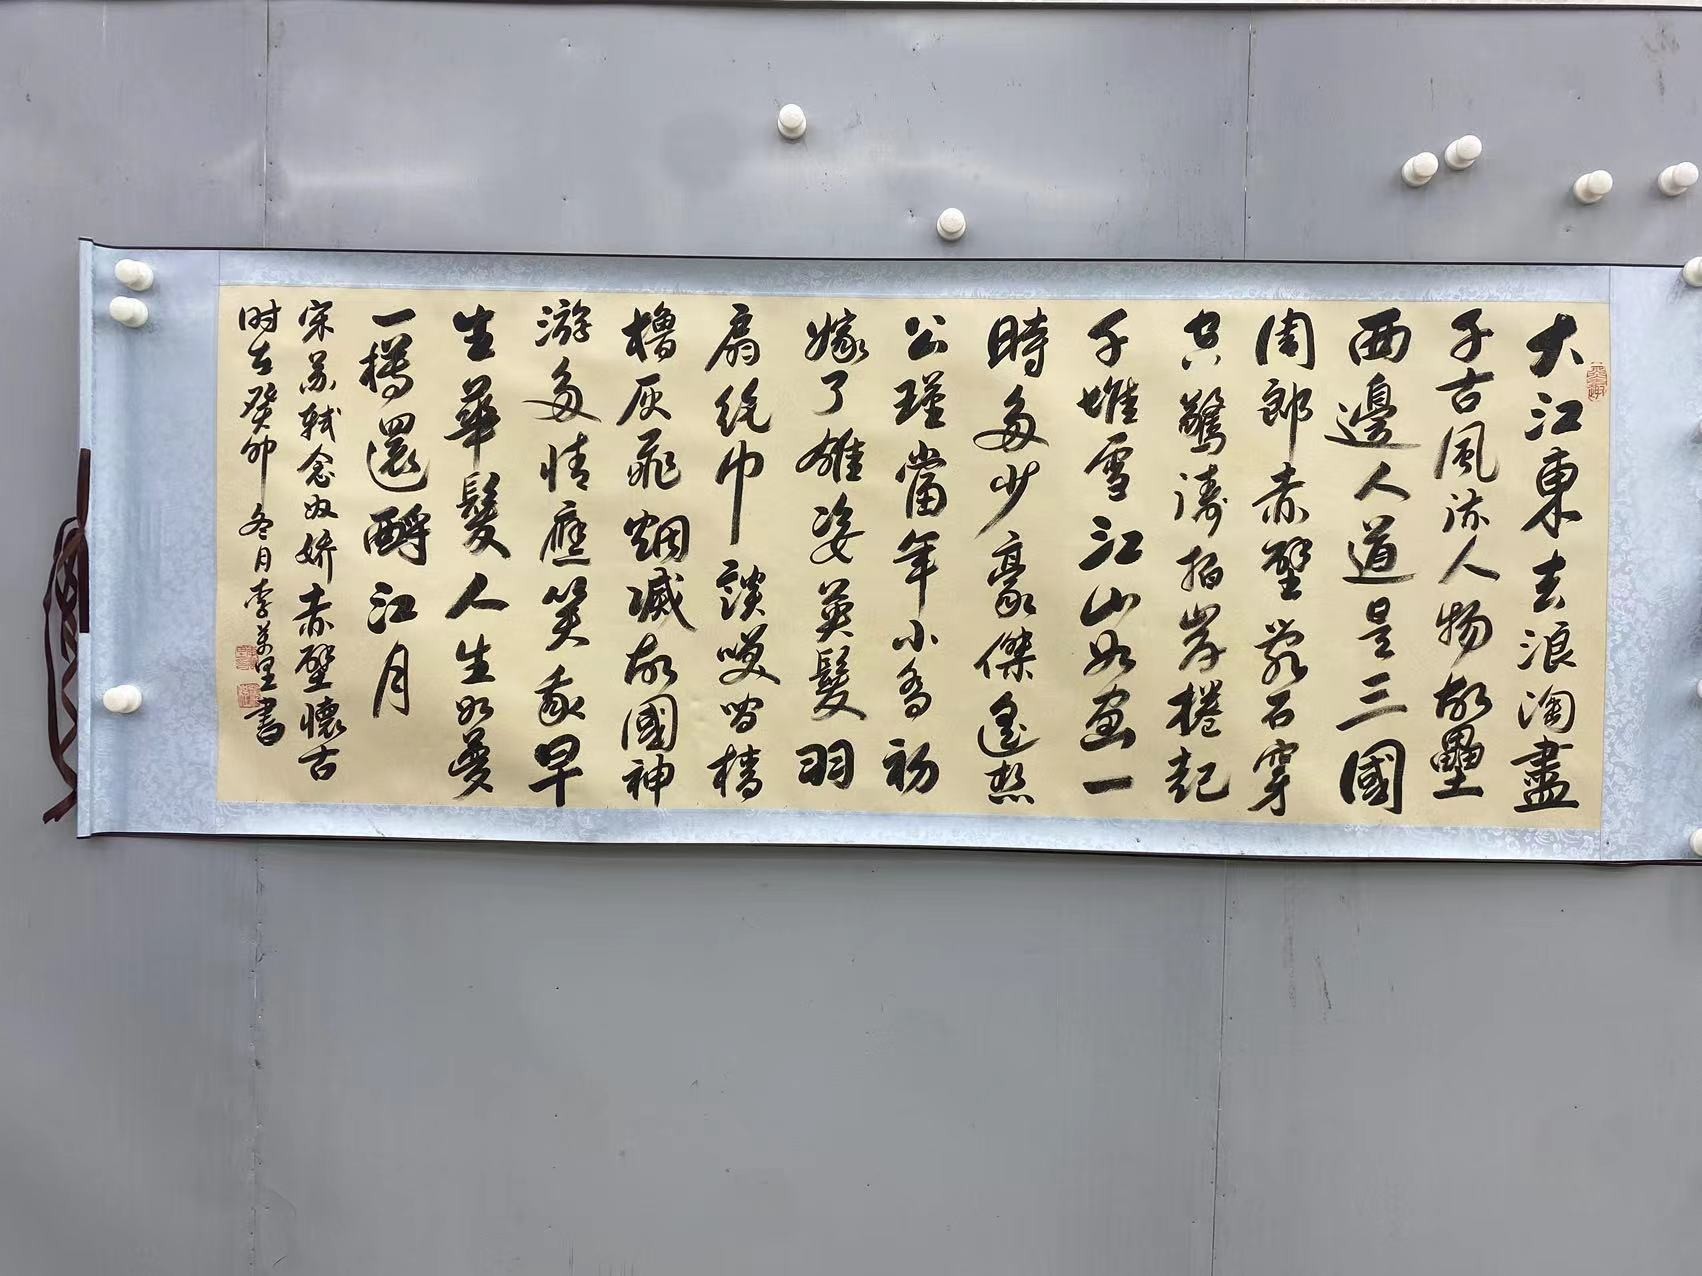 大江東去浪淘盡
千古風流人物故壘
西邊人道是三國
周郎赤壁亂石穿
空驚濤拍岸捲起
千堆雪江山如畫一
時多少豪傑遙想
公瑾當年小喬初
嫁了雄姿英髮羽
扇綸巾談笑間檣
櫓灰飛烟滅故國神
游多情應笑我早
生華髮人生如夢
一樽還酹江月
宋苏軾念奴娇赤壁懷古
时在癸卯冬月李萬里書